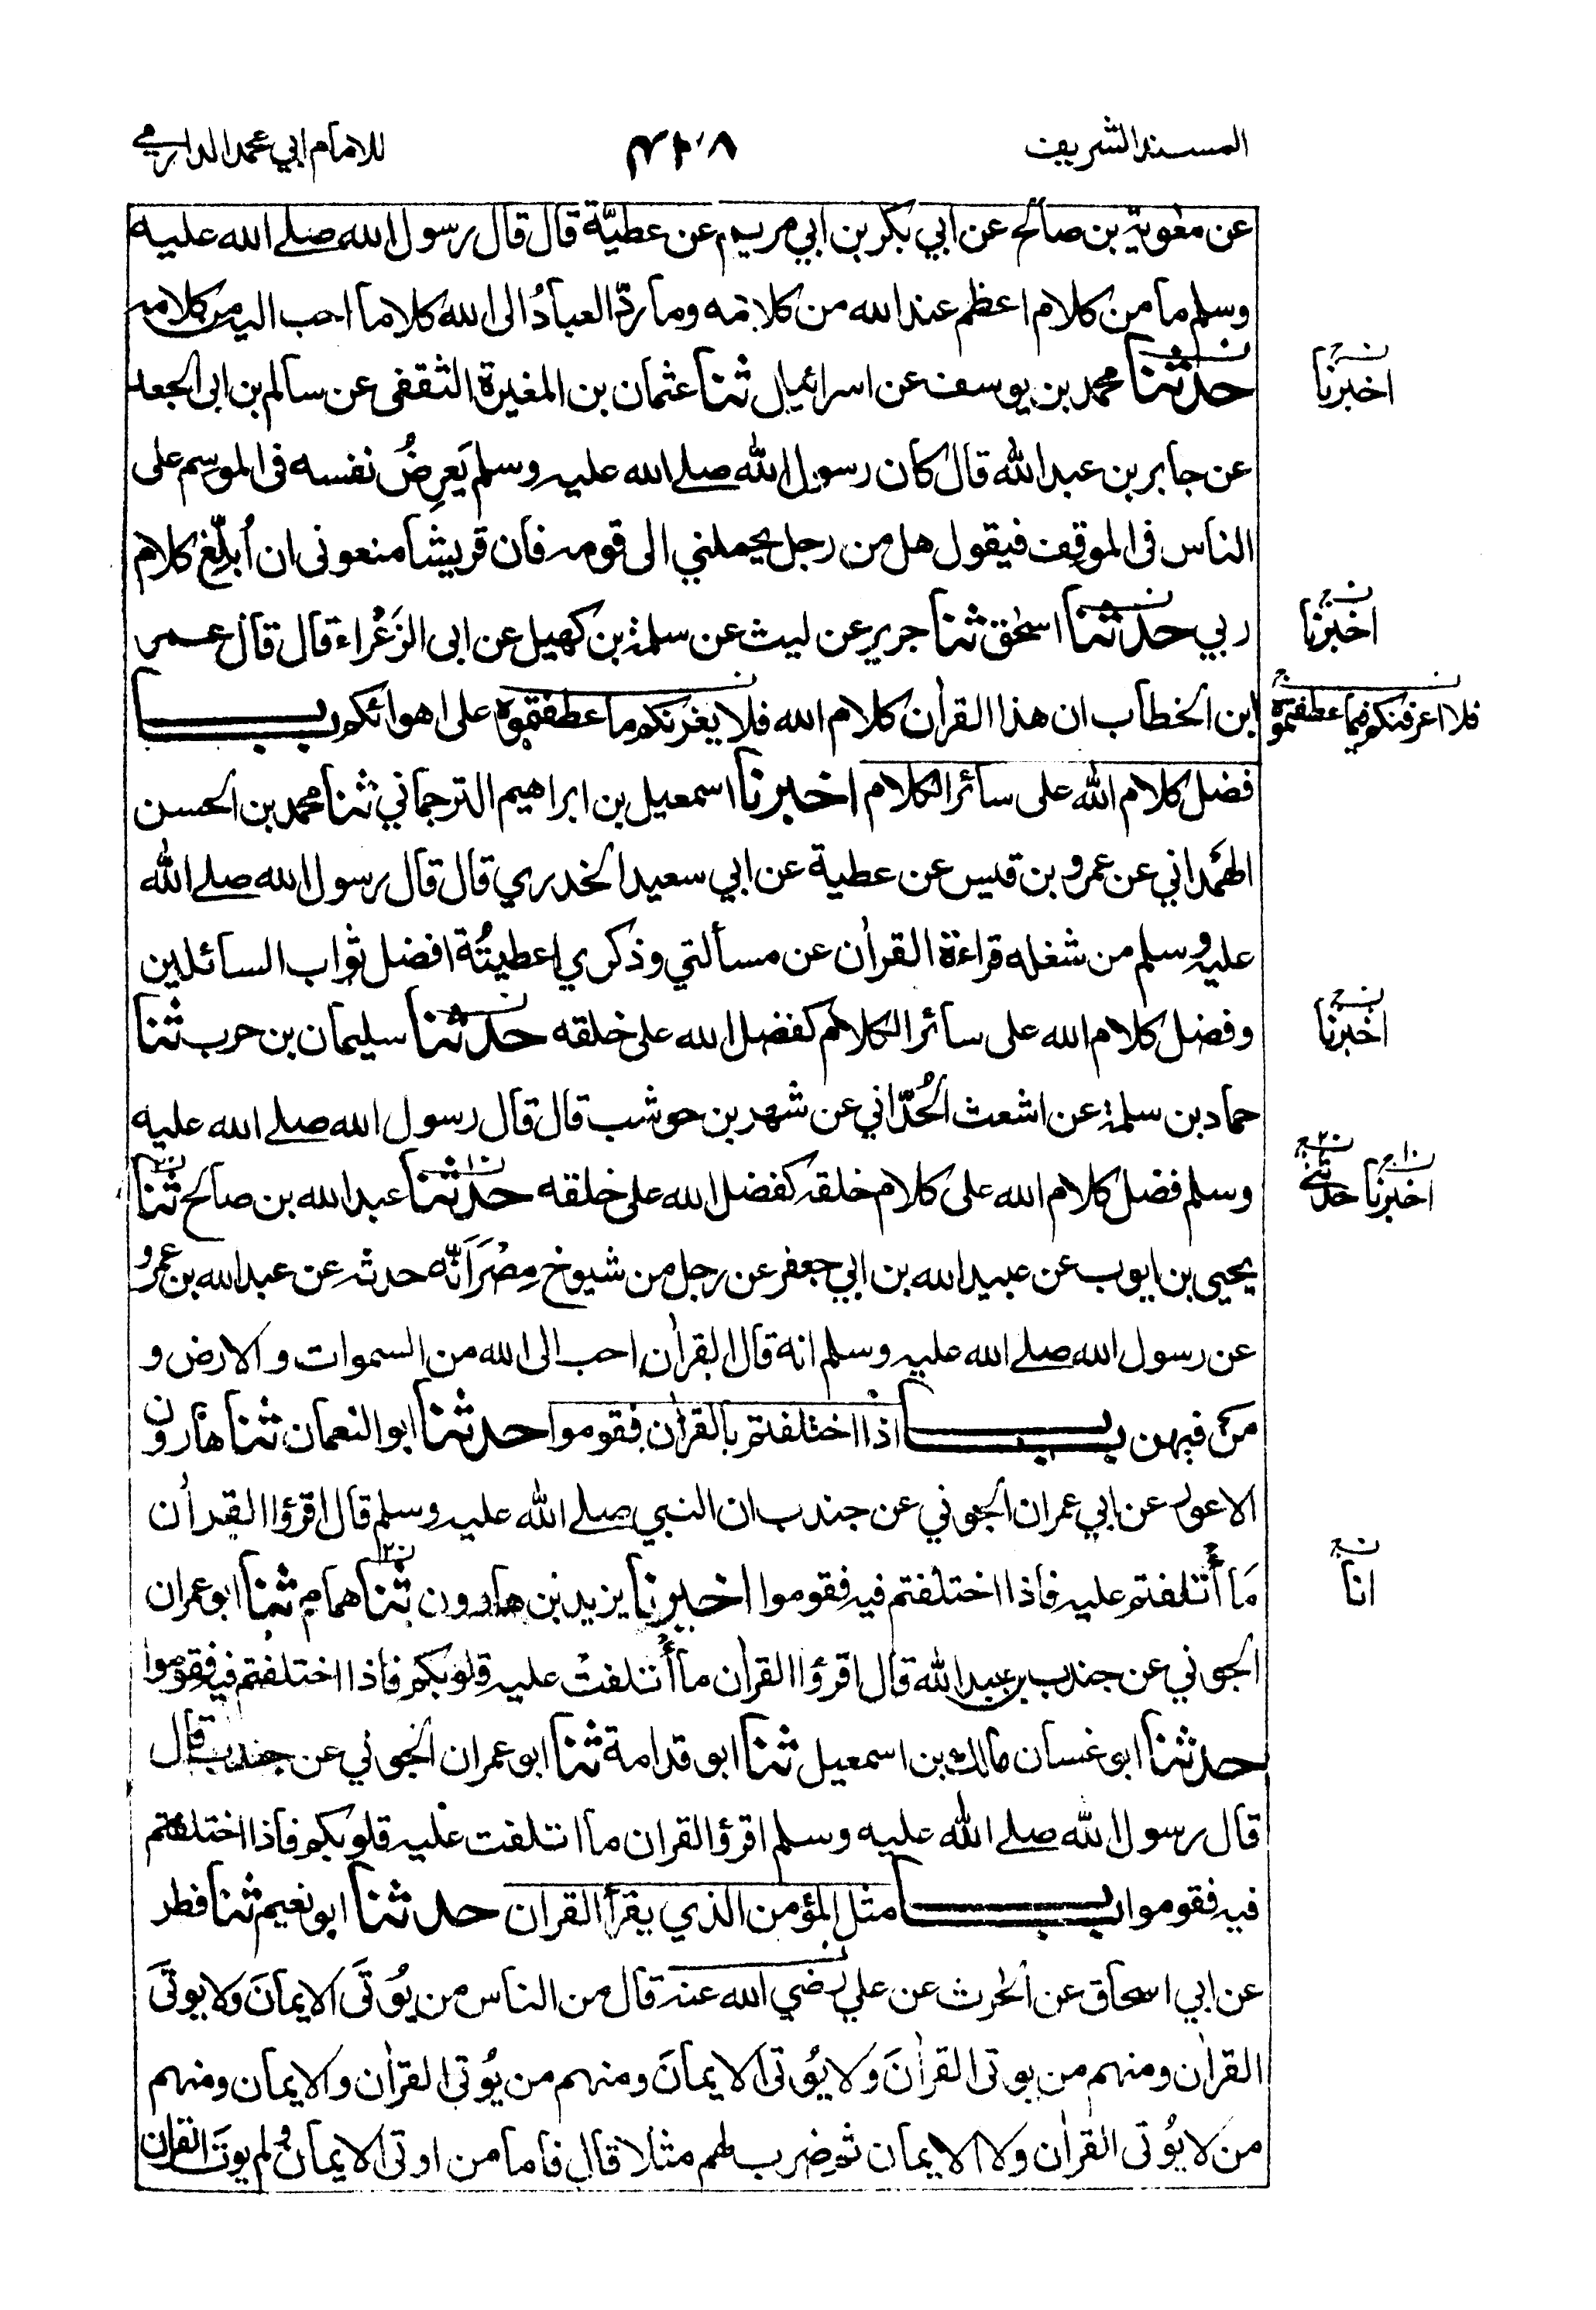 المسند الشريف
للامام ابي محمد الدارمي
عن معوية بن صالح عن ابي بكر بن ابي مريم عن عطيّة قال قال رسول الله صلے الله عليه
وسلم ما من كلام اعظم عند الله من كلامه وما ردّ العبادُ الى الله كلاما احب اليه من كلامه
حدثنا محمد بن يوسف عن اسرائيل ثنا عثمان بن المغيرة الثقفى عن سالم بن ابى الجعد
اخبرنا
عن جابر بن عبد الله قال كان رسول الله صلے الله عليه وسلم يَعرِضُ نفسه فى الموسم على
الناس فى الموقف فيقول هل من رجل يحملني الى قومه فان قريشا منعونى ان اُبلّغ كلام
ربي حدثنا اسحٰق ثنا جرير عن ليث عن سلمة بن كهيل عن ابى الزَعْراء قال قال عمر
اخبرنا
ابن الخطاب ان هذا القراٰن كلام الله فلا يغرنكم ما عطفتموه على اهوائكم باب
فلا اعرفنكم فيما عطفتموه
فضل كلام الله على سائر الكلام اخبرنا اسمعيل بن ابراهيم الترجماني ثنا محمد بن الحسن
الهَمْداني عن عمرو بن قيس عن عطية عن ابي سعيد الخدري قال قال رسول الله صلے الله
عليه وسلم من شغله قراءة القراٰن عن مسألتي وذكري اعطيتُه افضل ثواب السائلين
وفضل كلام الله على سائر الكلام كفضل الله على خلقه حدثنا سليمان بن حرب ثنا
اخبرنا
حماد بن سلمة عن اشعث الحُدّاني عن شهر بن حوشب قال قال رسول الله صلے الله عليه
وسلم فضل كلام الله على كلام خلقه كفضل الله على خلقه حدثنا عبد الله بن صالح ثنا
اخبرنا حدثني
يحيى بن ايوب عن عبيد الله بن ابي جعفر عن رجل من شيوخ مِصْرَ اَنّه حدثه عن عبد الله بن عمرو
عن رسول الله صلے الله عليه وسلم انه قال القراٰن احب الى الله من السموات والارض و
من فيهن باب اذا اختلفتم بالقراٰن فقوموا حدثنا ابو النعمان ثنا هارون
الاعور عن ابي عمران الجوني عن جندب ان النبي صلے الله عليه وسلم قال اقرؤا القراٰن
مَا أْتلفتم عليه فاذا اختلفتم فيه فقوموا اخبرنا يزيد بن هارون ثنا همام ثنا ابو عمران
انا
الجوني عن جندب بن عبد الله قال اقرؤا القراٰن ما أْتلفتْ عليه قلوبكم فاذا اختلفتم فيه فقوموا
حدثنا ابو غسان مالك بن اسمعيل ثنا ابو قدامة ثنا ابو عمران الجوني عن جندب قال
قال رسول الله صلے الله عليه وسلم اقرؤا القران ما ائتلفت عليه قلوبكم فاذا اختلفتم
فيه فقوموا باب مثل المؤمن الذي يقرأ القران حدثنا ابو نعيم ثنا فطر
عن ابي اسحاق عن الحٰرث عن علي رضي الله عنه قال من الناس من يُوتَى الايمانَ ولا يوتَى
القراٰن ومنهم من يوتى القراٰنَ ولا يُوتى الايمانَ ومنهم من يُوتى القراٰن والايمان ومنهم
من لا يُوتى القراٰن ولا الايمان ثم ضرب لهم مثلا قال فاما من اوتى الايمان ولم يوتَ القراٰن